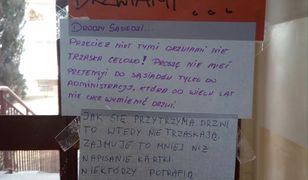 DRZWIAMI...
DRODZY SĄSIEDZI...
PRZECIEŻ NIKT TYMI DRZWIAMI NIE
TRZASKA CELOWO! PROSZĘ NIE MIEĆ
PRETENSJI DO SĄSIADÓW TYLKO DO
ADMINISTRACJI, KTÓRA OD WIELU LAT
NIE CHCE WYMIENIĆ DRZWI.
JAK SIĘ PRZYTRZYMA DRZWI
TO WTEDY NIE TRZASKAJĄ.
ZAJMUJE TO MNIEJ NIŻ
NAPISANIE KARTKI
NIEKTÓRZY POTRAFIĄ